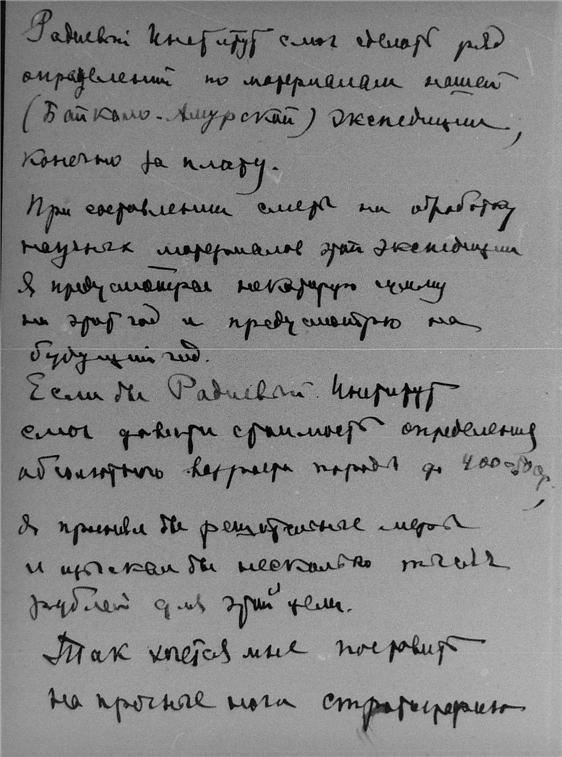 Радиевый Институт смог сделать ряд
определений по материалам нашей
(Байкало-Амурской) экспедиции,
конечно за плату.
При составлении сметы на обработку
научных материалов этой экспедиции
я предусмотрел некоторую сумму
на этот год и предусмотрю на
будущий год.
Если бы Радиевый Институт
смог довести стоимость определения
абсолютного возраста породы до 400-500 р.,
я принял бы решительные меры
и изыскал бы несколько тысяч
рублей для этой цели.
Так хочется мне поставить
на прочные ноги стратиграфию